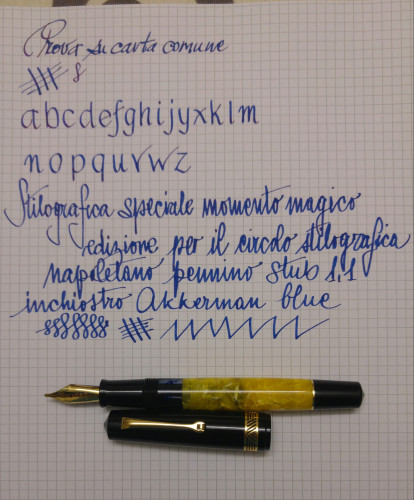 Prova su carta comune
abcdefghijyxklm
nopqurwz
Stilografica speciale momento magico
edizione per il circolo stilografica
napoletano pennino stub 1,1
inchiostro Akkerman blue